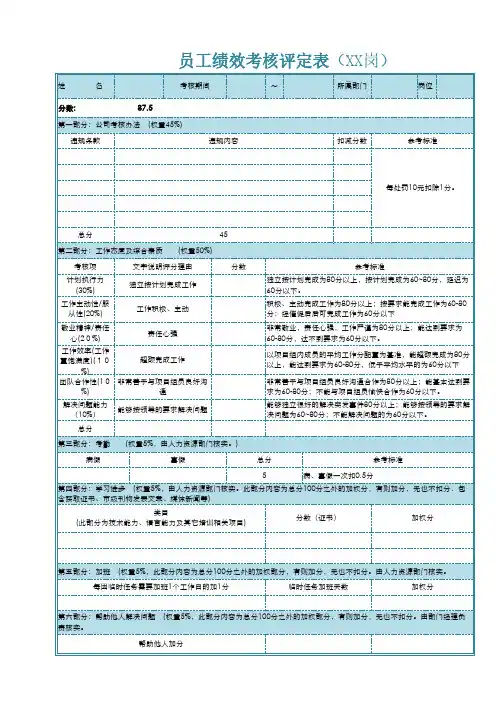 员工绩效考核评定表（XX岗）
姓 名 考核期间 ～ 所属部门 岗位
分数: 87.5
第一部分：公司考核办法 (权重45%)
违规条款 违规内容 扣减分数 参考标准
每处罚10元扣除1分。
总分 45
第二部分：工作态度及综合素质 (权重50%)
考核项 文字说明评分理由 分数 参考标准
计划执行力(30%) 独立按计划完成工作 独立按计划完成为80分以上，按计划完成为60-80分，延迟为60分以下。
工作主动性/服从性(20%) 工作积极、主动 积极、主动完成工作为80分以上；按要求能完成工作为60-80分；经催促后后可完成工作为60分以下
敬业精神/责任心(20%) 责任心强 非常敬业，责任心强、工作严谨为80分以上；能达到要求为60-80分，达不到要求为60分以下。
工作效率(工作量饱满度)(10%) 超额完成工作 以项目组内成员的平均工作分配量为基准，能超额完成为80分以上，能达到要求为60-80分，低于平均水平的为60分以下
团队合作性(10%) 非常善于与项目组员良好沟通 非常善于与项目组员良好沟通合作为80分以上；能基本达到要求为60-80分；不能与项目组员愉快合作为60分以下。
解决问题能力(10%) 能够按领导的要求解决问题 能够独立很好的解决突发事件80分以上；能够按领导的要求解决问题为60-80分；不能解决问题的为60分以下。
总分
第三部分：考勤 (权重5%，由人力资源部门核实。)
病假 事假 总分 参考标准
5 病、事假一次扣0.5分
第四部分：学习进步 (权重5%，由人力资源部门核实。此部分内容为总分100分之外的加权分，有则加分，无也不扣分，包含获取证书、市级刊物发表文章、媒体新闻等)
类目 分数（证书） 加权分
(此部分为技术能力、语言能力及其它培训相关项目)
第五部分：加班 (权重5%，此部分内容为总分100分之外的加权部分，有则加分，无也不扣分。由人力资源部门核实。
每因临时任务需要加班1个工作日的加1分 临时任务加班天数 加权分
第六部分：帮助他人解决问题 (权重5%，此部分内容为总分100分之外的加权部分，有则加分，无也不扣分。由部门经理负责核实。
帮助他人加分